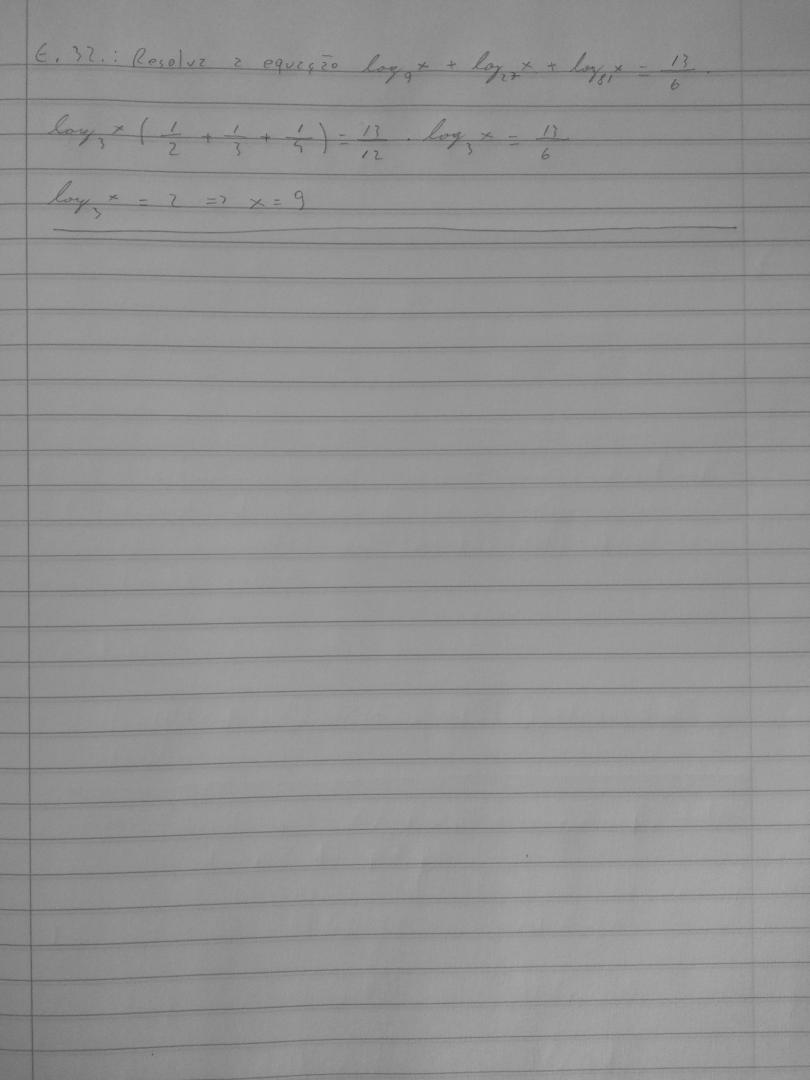 E. 32.: Resolva a equação log₉ x + log₂₇ x + log₈₁ x = 13/6.
log₃ x (1/2 + 1/3 + 1/4) = 13/12 · log₃ x = 13/6
log₃ x = 2 => x = 9